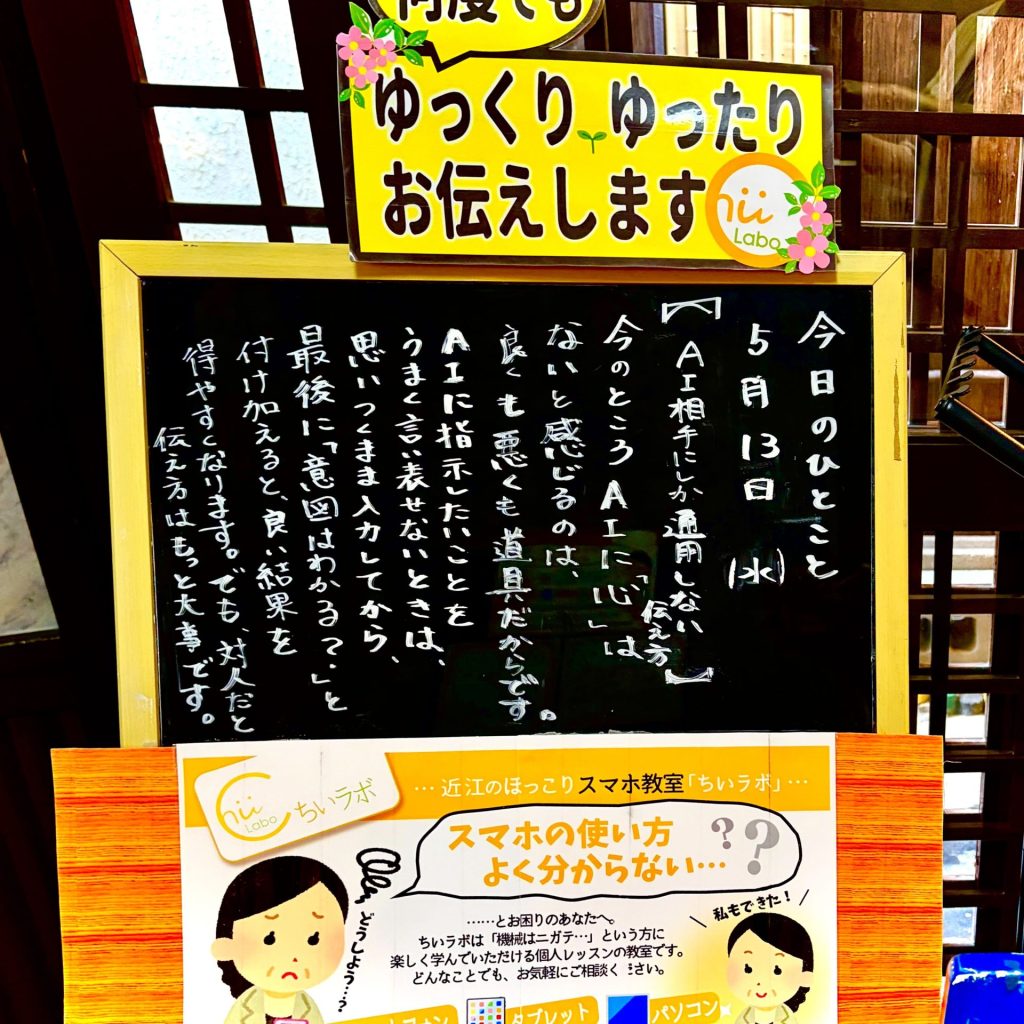 何度でも
ゆっくり ゆったり
お伝えします
Chii
Labo
今日のひとこと
5月13日(水)
【AI相手にしか通用しない「伝え方」】
今のところAIに「心」は
ないと感じるのは、
良くも悪くも道具だからです。
AIに指示したいことを
うまく言い表せないときは、
思いつくまま入力してから、
最後に「意図はわかる？」と
付け加えると、良い結果を
得やすくなります。でも、対人だと
伝え方はもっと大事です。
Chii
Labo
ちいラボ
…近江のほっこりスマホ教室「ちいラボ」…
スマホの使い方
よく分からない…??
どうしよう…?
……とお困りのあなたへ。
ちいラボは「機械はニガテ…」という方に
楽しく学んでいただける個人レッスンの教室です。
どんなことでも、お気軽にご相談く さい。
私もできた！
タブレット
パソコン